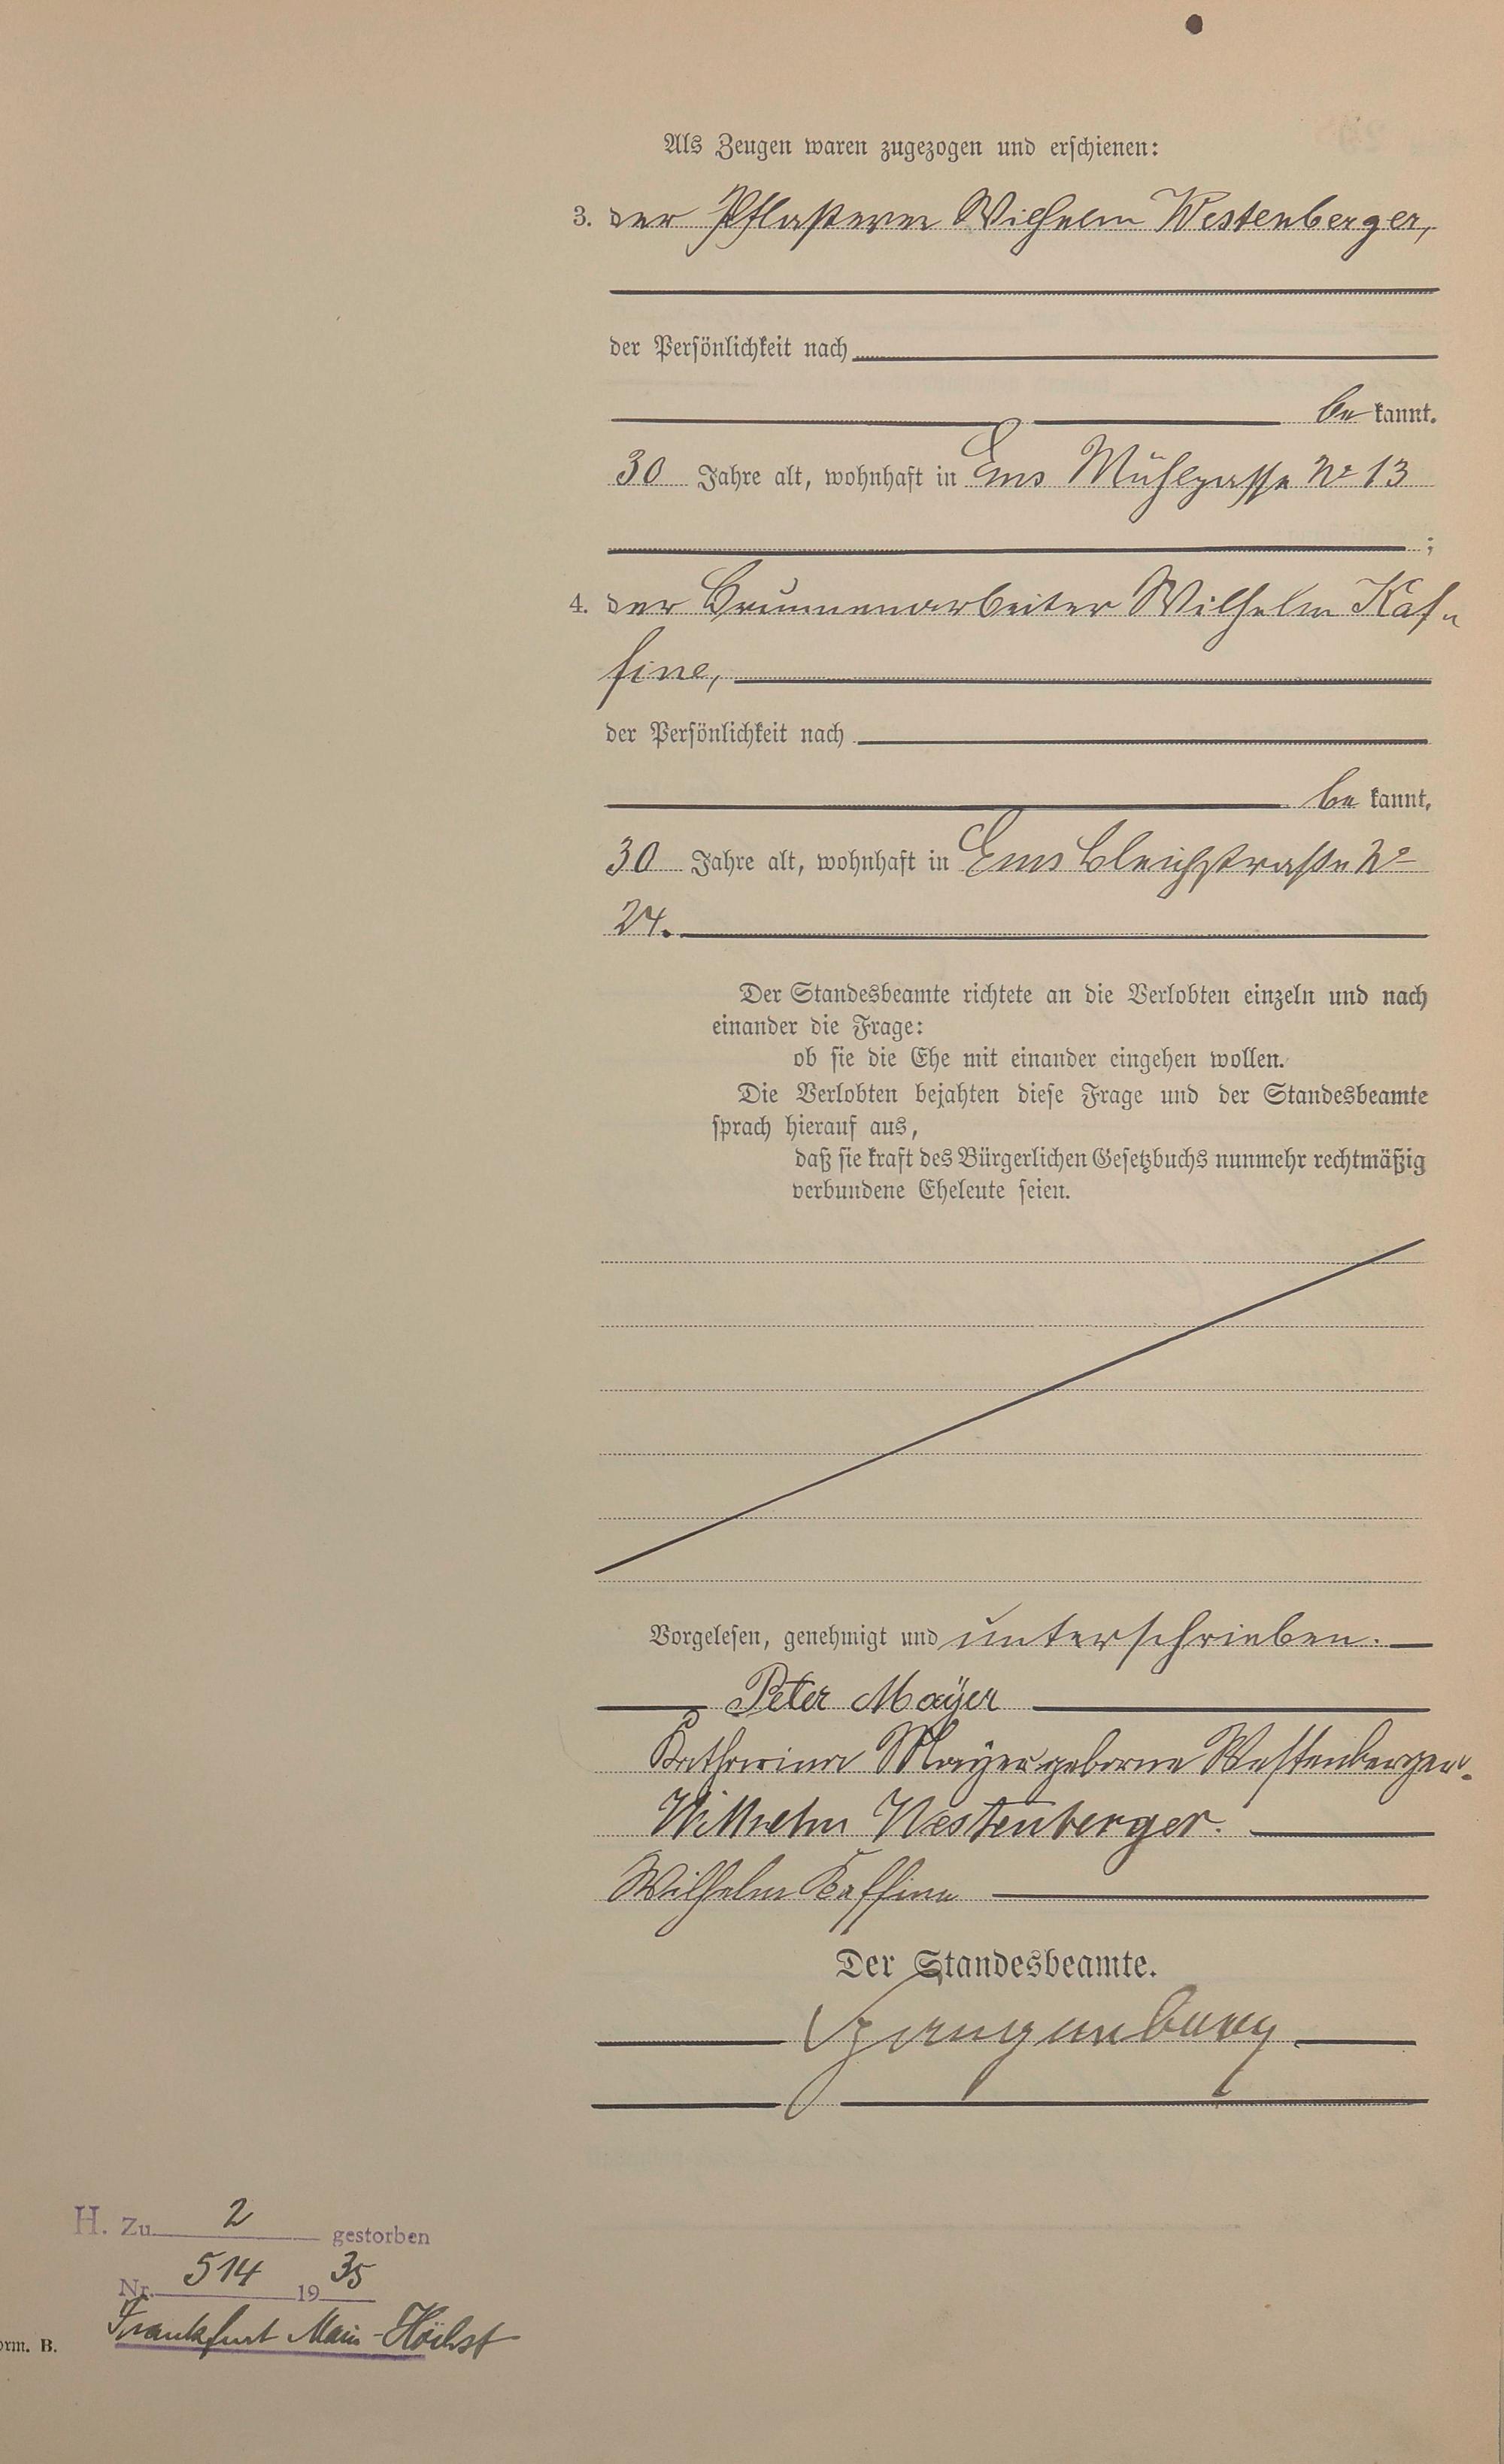 Als Zeugen waren zugezogen und erschienen:
3. der Pflasterer Wilhelm Westenberger,
der Persönlichkeit nach
be kannt.
30 Jahre alt, wohnhaft in Ems Mühlgasse No 13
;
4. der Brunnenarbeiter Wilhelm Kaf-
fine,
der Persönlichkeit nach
be kannt,
30 Jahre alt, wohnhaft in Ems Bleichstraße No
24.
Der Standesbeamte richtete an die Verlobten einzeln und nach
einander die Frage:
ob sie die Ehe mit einander eingehen wollen.
Die Verlobten bejahten diese Frage und der Standesbeamte
sprach hierauf aus,
daß sie kraft des Bürgerlichen Gesetzbuchs nunmehr rechtmäßig
verbundene Eheleute seien.
Vorgelesen, genehmigt und unterschrieben.
Peter Mayer
Katharina Mayer geborne Westenberger.
Wilhelm Westenberger.
Wilhelm Kaffine
Der Standesbeamte.
H. Zu 2 gestorben
Nr. 514 19 35
Frankfurt Main-Höchst
orm. B.